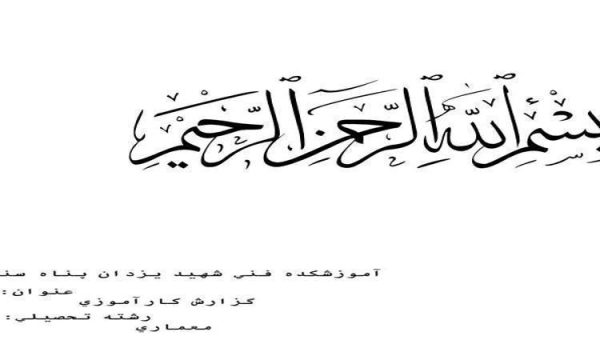 بسم الله الرحمن الرحيم
آموزشكده فني شهيد يزدان پناه
عنوان:
گزارش كارآموزي
رشته تحصيلي:
معماري